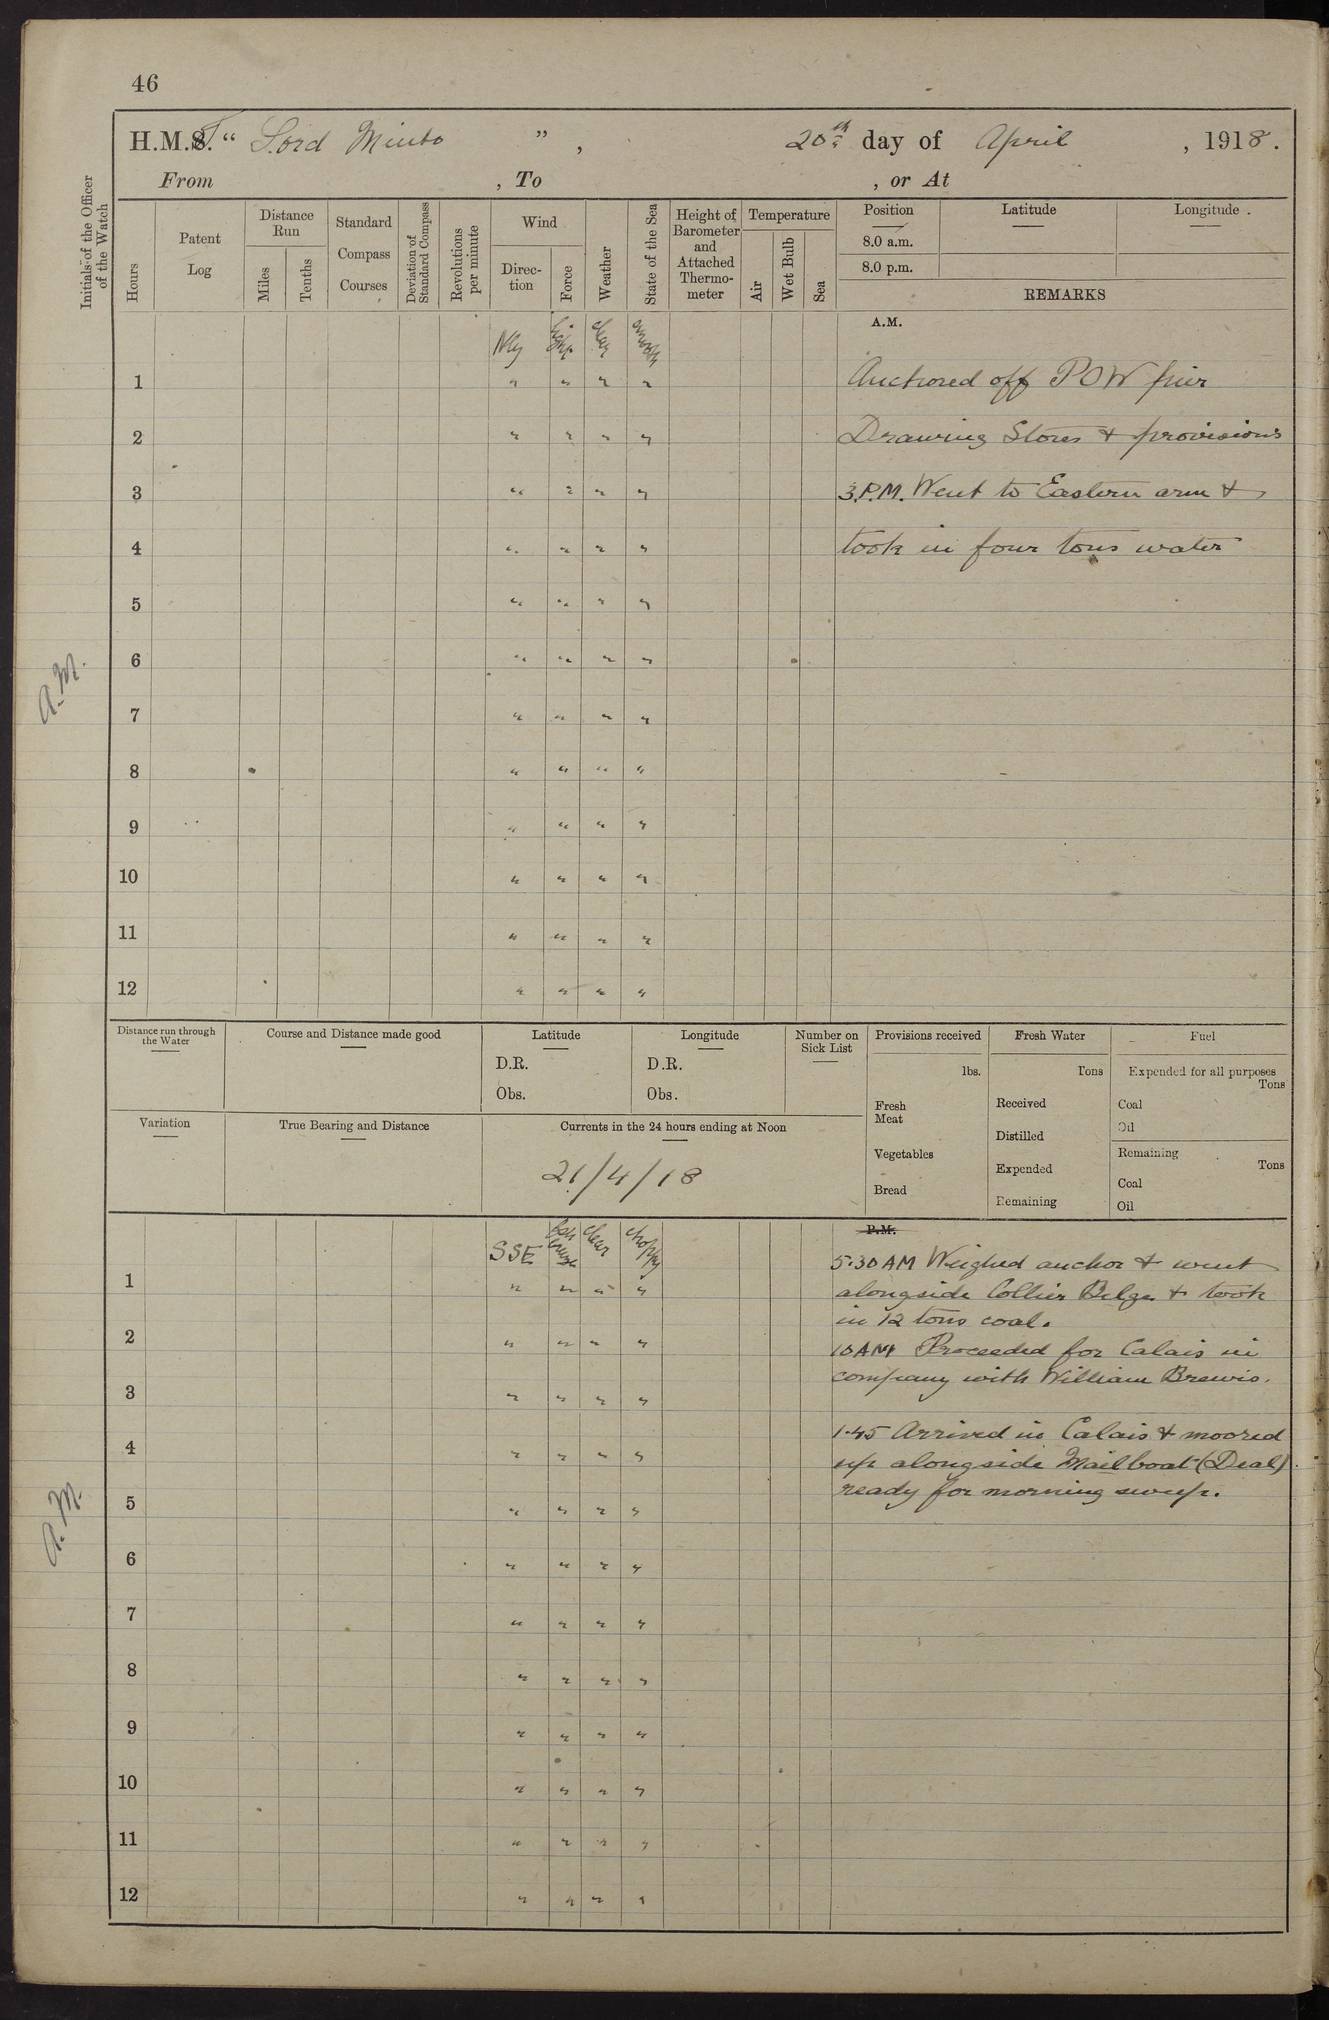 46
H.M.S.T. " Lord Minto " , 20th day of April , 1918.
From , To , or At
Initials of the Officer of the Watch
Hours
Patent Log
Distance Run
Miles
Tenths
Standard Compass Courses
Deviation of Standard Compass
Revolutions per minute
Wind
Direction
Force
Weather
State of the Sea
Height of Barometer and Attached Thermometer
Temperature
Air
Wet Bulb
Sea
Position Latitude Longitude
8.0 a.m.
8.0 p.m.
REMARKS
A.M.
Nly light clear smooth
1 " " " " Anchored off P O W pier
2 " " " " Drawing Stores & provisions
3 " " " " 3.P.M. Went to Eastern arm &
4 " " " " took in four tons water
5 " " " "
6 " " " "
7 " " " "
8 " " " "
9 " " " "
10 " " " "
11 " " " "
12 " " " "
A.M.
Distance run through the Water
Course and Distance made good
Latitude
D.R.
Obs.
Longitude
D.R.
Obs.
Number on Sick List
Provisions received
lbs.
Fresh Meat
Vegetables
Bread
Fresh Water
Tons
Received
Distilled
Expended
Remaining
Fuel
Expended for all purposes
Tons
Coal
Oil
Remaining
Tons
Coal
Oil
Variation
True Bearing and Distance
Currents in the 24 hours ending at Noon
21/4/18
P.M.
SSE fresh breeze clear choppy
5.30 AM Weighed anchor & went
1 " " " " alongside Collier Belge & took
in 12 tons coal.
2 " " " " 10 AM Proceeded for Calais in
company with William Brewis.
3 " " " "
1.45 Arrived in Calais & moored
4 " " " " up alongside Mailboat (Deal)
ready for morning sweep.
5 " " " "
6 " " " "
7 " " " "
8 " " " "
9 " " " "
10 " " " "
11 " " " "
12 " " " "
A.M.